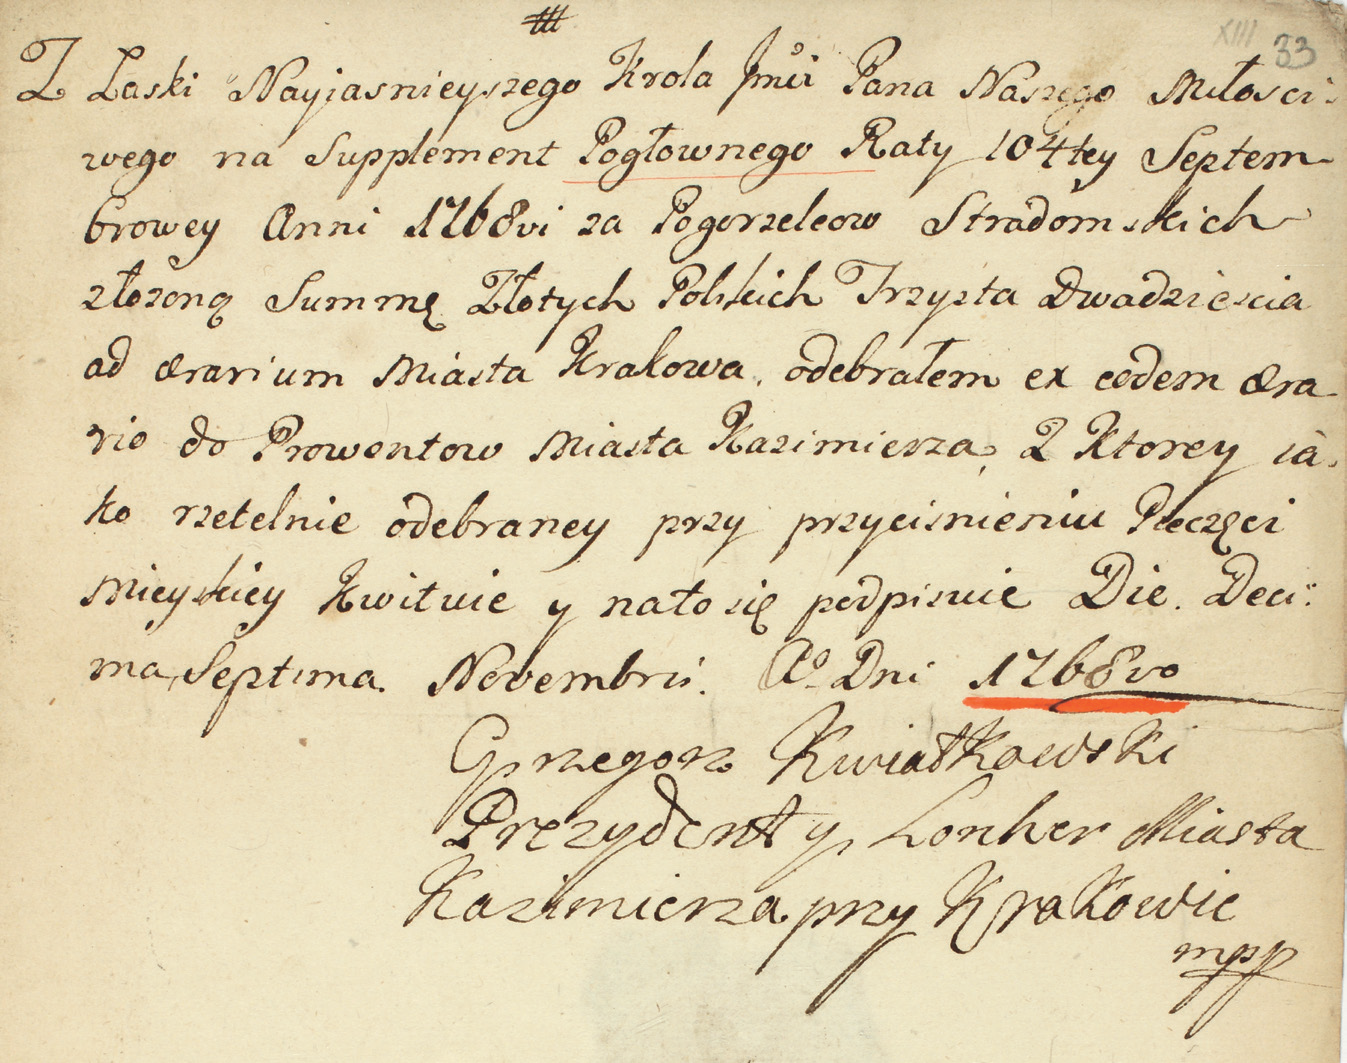 XIII 33
Z Łaski Nayjasnieyszego Krola Jmći Pana Naszego Miłosci:
wego na Supplement Pogłownego Raty 104tey Septem-
browey Anni 1768vi za Pogorzelcow Stradomskich
złożoną Summę Złotych Polskich Trzysta Dwadziescia
ad ærarium Miasta Krakowa, odebrałem ex eodem æra-
rio do Prowentow Miasta Kazimierza, Z Ktorey ia-
ko rzetelnie odebraney przy przycisnieniu Pieczęci
Mieyskiey Kwituie y nato się podpisuie Die. Deci:
ma, Septima. Novembris. Ao Dni 1768vo
Grzegorz Kwiatkowski
Prezydent y Lonher Miasta
Kazimierza przy Krakowie
mpp